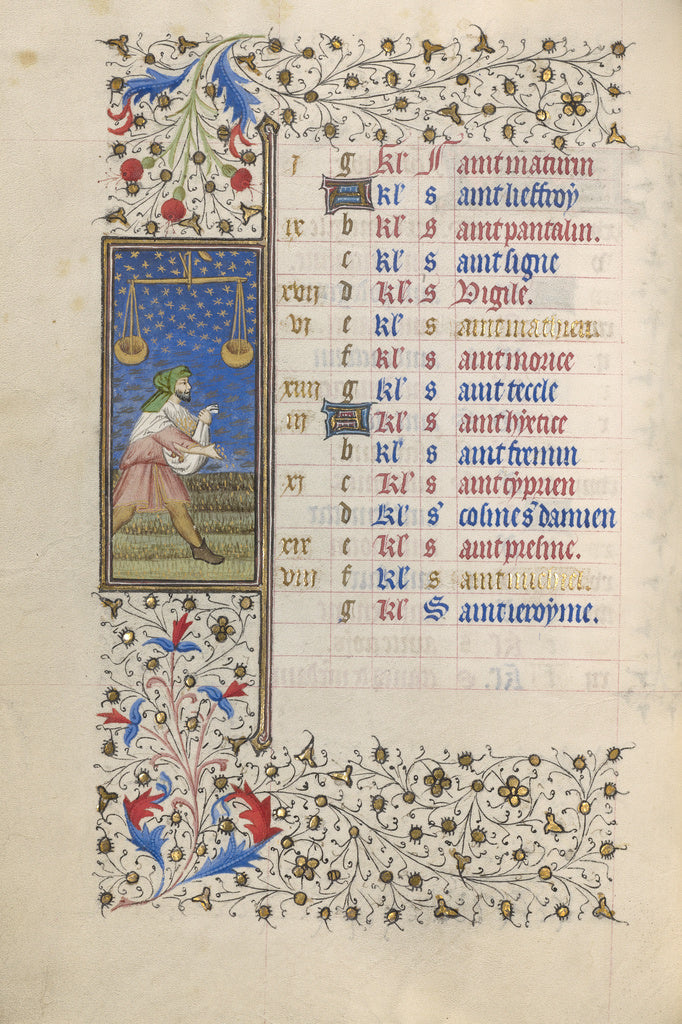 j g kl' Saint maturin
A kl' s aint lieffroy
ix b kl' s aint pantalin.
c kl' s aint signe
xvij d kl'. s Vigile.
vj e kl' s aint mathieu
f kl' s aint morice
xiiij g kl' s aint teccle
iij A kl' s aint
b kl' s aint fremin
xj c kl' s aint cyprien
d kl' s' cosme s' damien
xix e kl' s aint presme.
viij f kl' s aint michiel.
g kl' S aint ieroyme.